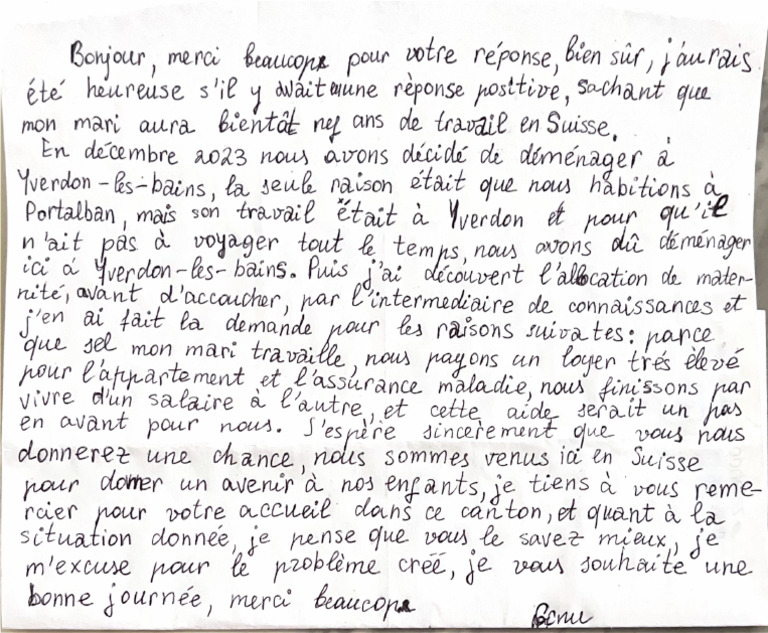 Bonjour, merci beaucoup pour votre réponse, bien sûr, j'aurais
été heureuse s'il y avait une réponse positive, sachant que
mon mari aura bientôt nef ans de travail en Suisse.
En décembre 2023 nous avons décidé de déménager à
Yverdon-les-bains, la seule raison était que nous habitions à
Portalban, mais son travail était à Yverdon et pour qu'il
n'ait pas à voyager tout le temps, nous avons dû déménager
ici á Yverdon-les-bains. Puis j'ai découvert l'allocation de mater-
nité, avant d'accoucher, par l'intermediaire de connaissances et
j'en ai fait la demande pour les raisons suivates: parce
que sel mon mari travaille, nous payons un loyer trés élevé
pour l'appartement et l'assurance maladie, nous finissons par
vivre d'un salaire à l'autre, et cette aide serait un pas
en avant pour nous. J'espère sincerement que vous nous
donnerez une chance, nous sommes venus ici en Suisse
pour donner un avenir à nos enfants, je tiens à vous reme-
rcier pour votre accueil dans ce canton, et quant à la
situation donnée, je pense que vous le savez mieux, je
m'excuse pour le problème créé, je vous souhaite une
bonne journée, merci beaucoup